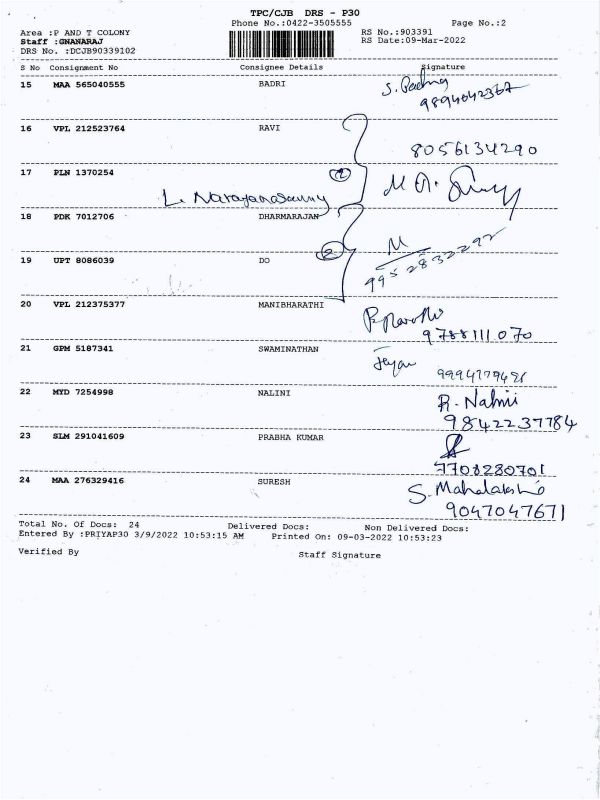 TPC/CJB DRS - P30
Phone No.:0422-3505555 Page No.:2
Area :P AND T COLONY RS No.:903391
Staff :GNANARAJ RS Date:09-Mar-2022
DRS No. :DCJB90339102
S No Consignment No Consignee Details Signature
15 MAA 565040555 BADRI S. Padma
9894042367
16 VPL 212523764 RAVI
8056134290
17 PLN 1370254
L. Narayanasamy
18 PDK 7012706 DHARMARAJAN
M
19 UPT 8086039 DO 9952832292
20 VPL 212375377 MANIBHARATHI
9788111070
21 GPM 5187341 SWAMINATHAN Jeyan
22 MYD 7254998 NALINI R. Nalini
9842237784
23 SLM 291041609 PRABHA KUMAR
7708280701
24 MAA 276329416 SURESH S. Mahalakshmi
9047047671
Total No. Of Docs: 24 Delivered Docs: Non Delivered Docs:
Entered By :PRIYAP30 3/9/2022 10:53:15 AM Printed On: 09-03-2022 10:53:23
Verified By Staff Signature